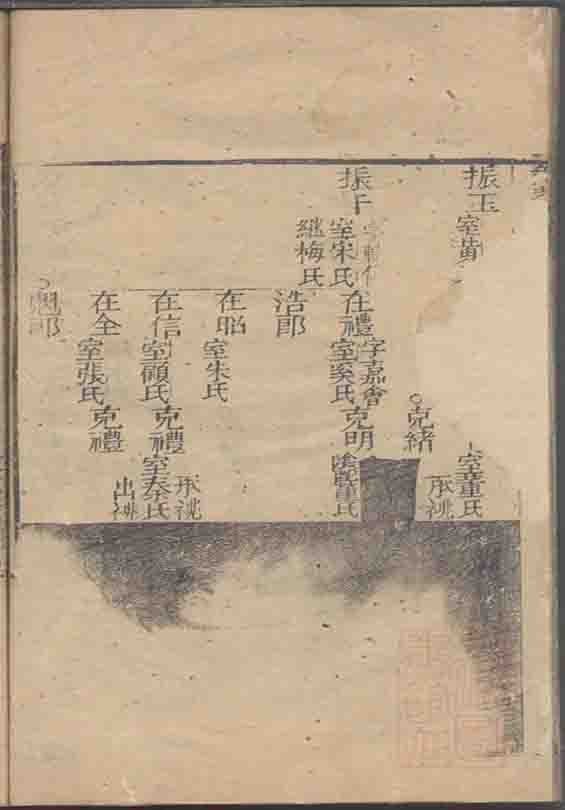 振玉
室黄
室董氏
承祧
克緒
振干
室宋氏
繼梅氏
在禮
字嘉會
室奚氏
克明
董氏
浩郎
在昭
室朱氏
在信
室顧氏
克禮
承祧
室秦氏
在全
室張氏
克禮
出祧